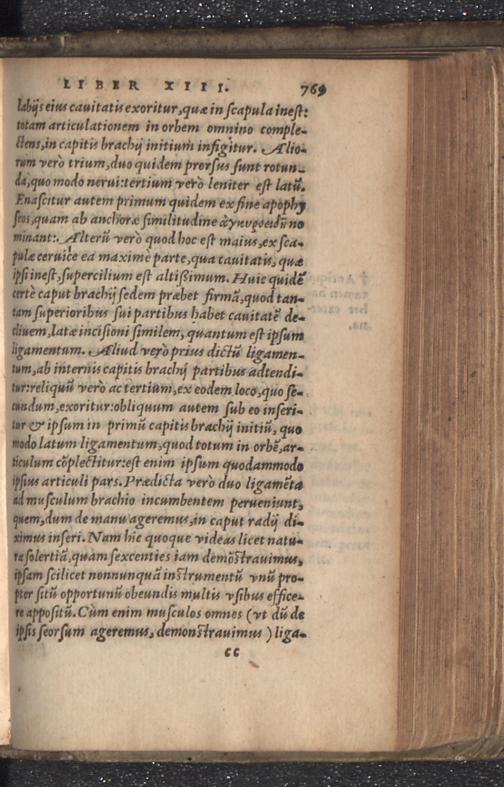 LIBER XIII. 769
labijs eius cauitatis exoritur, quæ in scapula inest:
totam articulationem in orbem omnino comple-
ctens, in capitis brachij initium infigitur. Alio-
rum verò trium, duo quidem prorsus sunt rotun-
da, quo modo nerui: tertium verò leniter est latū.
Enascitur autem primum quidem ex fine apophy
seos, quam ab anchoræ similitudine ἀγκυροειδῆ no
minant: Alterū verò quod hoc est maius, ex sca-
pulæ ceruice ea maximè parte, qua cauitatis, quæ
ipsi inest, supercilium est altissimum. Huic quidē
certè caput brachij sedem præbet firmā, quod tan-
tam superioribus sui partibus habet cauitatē de-
cliuem, latæ incisioni similem, quantum est ipsum
ligamentum. Aliud verò prius dictū ligamen-
tum, ab internis capitis brachij partibus adtendi-
tur: reliquū verò ac tertium, ex eodem loco, quo se-
cundum, exoritur: obliquum autem sub eo inseri-
tur & ipsum in primū capitis brachij initiū, quo
modo latum ligamentum, quod totum in orbē, ar-
ticulum cōplectitur: est enim ipsum quodammodo
ipsius articuli pars. Prædicta verò duo ligamēta
ad musculum brachio incumbentem perueniunt,
quem, dum de manu ageremus, in caput radij di-
ximus inseri. Nam hic quoque videas licet natu-
ræ solertiā, quam sexcenties iam demōstrauimus,
ipsam scilicet nonnunquā instrumentū vnū pro-
pter sitū opportunū obeundis multis vsibus effice-
re appositū. Cùm enim musculos omnes (vt dū de
ipsis seorsum ageremus, demonstrauimus) liga-
cc